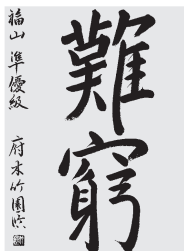 難窮
福山 準優級 府木竹園